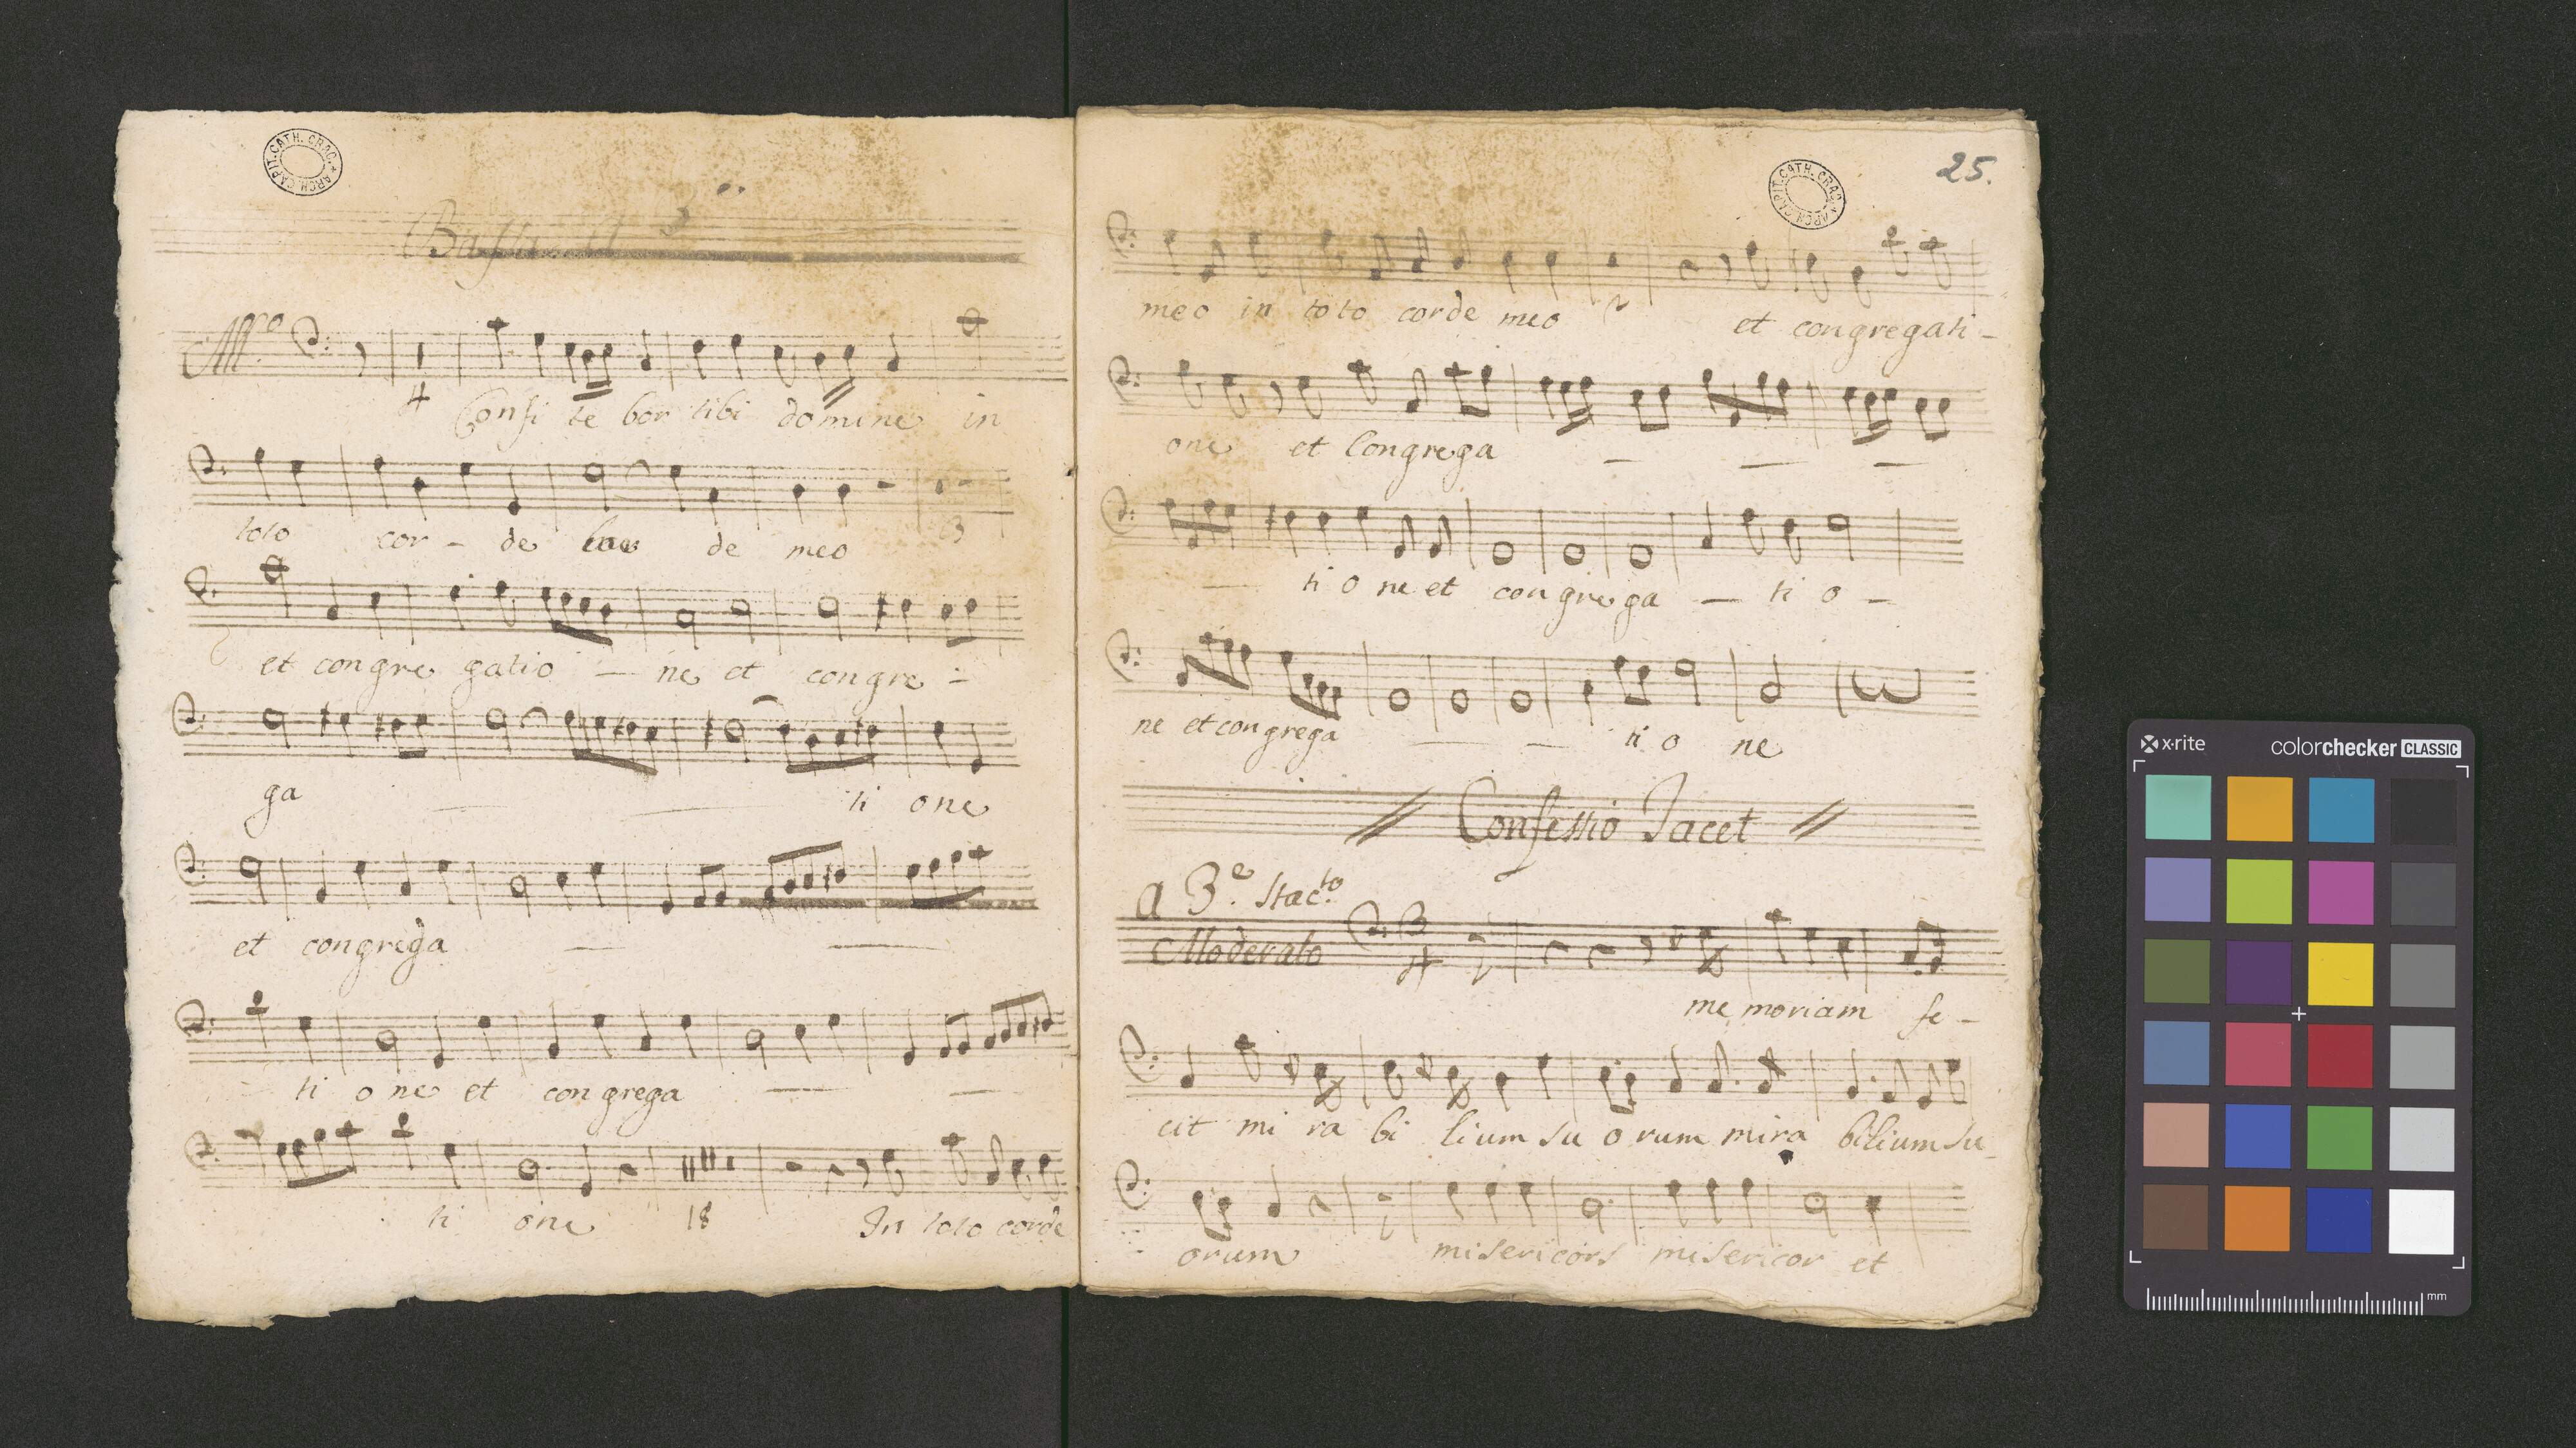 ARCH. CAPIT. CATH. CRAC.
All.o
4
Confi te bor tibi domine in
toto cor - de cor de meo 3
et con gre gatio — ne et con gre -
ga — — ti one
et congrega — —
ti o ne et con grega — —
ti one 18 In toto corde
25.
ARCH. CAPIT. CATH. CRAC.
meo in toto corde meo 2 et congregati -
one et Congrega — — —
— ti o ne et con gre ga — ti o -
ne et con grega — — ti o ne
// Confessio Jacet //
a 3.e Stac.to
Moderato 3 4
me moriam fe -
cit mi ra bi lium su o rum mira bilium su -
orum misericors misericor et
x·rite colorchecker CLASSIC
mm